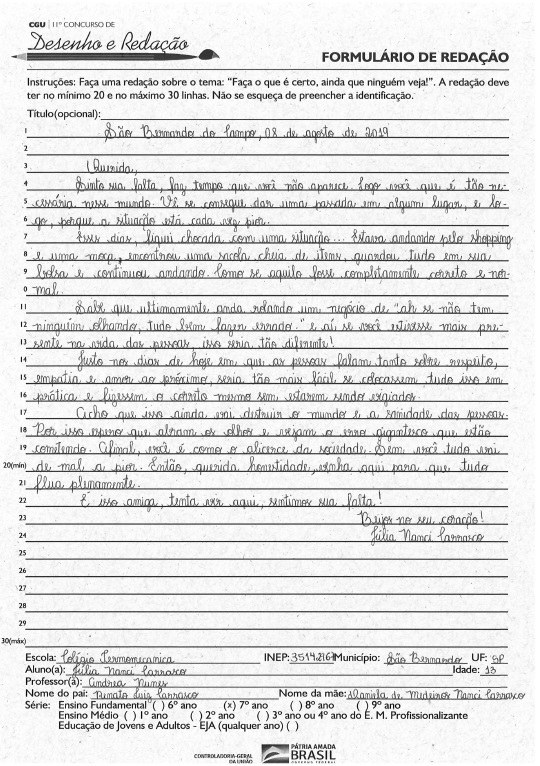 CGU 11º CONCURSO DE
Desenho e Redação
FORMULÁRIO DE REDAÇÃO
Instruções: Faça uma redação sobre o tema: "Faça o que é certo, ainda que ninguém veja!". A redação deve
ter no mínimo 20 e no máximo 30 linhas. Não se esqueça de preencher a identificação.
Título(opcional):
1 São Bernardo do Campo, 08 de agosto de 2019
2
3 Querida,
4 Sinto sua falta, faz tempo que você não aparece. Logo você que é tão ne-
5 cessária nesse mundo. Vê se consegue dar uma passada em algum lugar, e lo-
6 go, porque a situação está cada vez pior.
7 Esses dias, fiquei chocada com uma situação... Estava andando pelo shopping
8 e uma moça, encontrou uma sacola cheia de itens, guardou tudo em sua
9 bolsa e continuou andando. Como se aquilo fosse completamente correto e nor-
0 mal.
11 Sabe que ultimamente anda rolando um negócio de "ah se não tem
12 ninguém olhando, tudo bem fazer errado." e aí se você estivesse mais pre-
13 sente na vida das pessoas, isso seria tão diferente!
14 Justo nos dias de hoje em que as pessoas falam tanto sobre respeito,
15 empatia e amor ao próximo, seria tão mais fácil se colocassem tudo isso em
16 prática e fizessem o correto mesmo sem estarem sendo vigiados.
17 Acho que isso ainda vai destruir o mundo e a sanidade das pessoas.
18 Por isso espero que abram os olhos e vejam o erro gigantesco que estão
19 cometendo. Afinal, você é como o alicerce da sociedade. Sem você tudo vai
20(min) de mal a pior. Então, querida honestidade, venha aqui para que tudo
21 flua plenamente.
22 É isso amiga, tenta vir aqui, sentimos sua falta!
23 Beijos no seu coração!
24 Júlia Nanci Carrasco
25
26
27
28
29
30(máx)
Escola: Colégio Termomecanica INEP: Município: São Bernardo UF: SP
Aluno(a): Júlia Nanci Carrasco Idade: 13
Professor(a): Andrea Nunes
Nome do pai: Renato Luiz Carrasco Nome da mãe: Daniela de Medeiros Nanci Carrasco
Série: Ensino Fundamental ( ) 6º ano (x) 7º ano ( ) 8º ano ( ) 9º ano
Ensino Médio ( ) 1º ano ( ) 2º ano ( ) 3º ano ou 4º ano do E. M. Profissionalizante
Educação de Jovens e Adultos - EJA (qualquer ano) ( )
CONTROLADORIA-GERAL
DA UNIÃO
PÁTRIA AMADA
BRASIL
GOVERNO FEDERAL